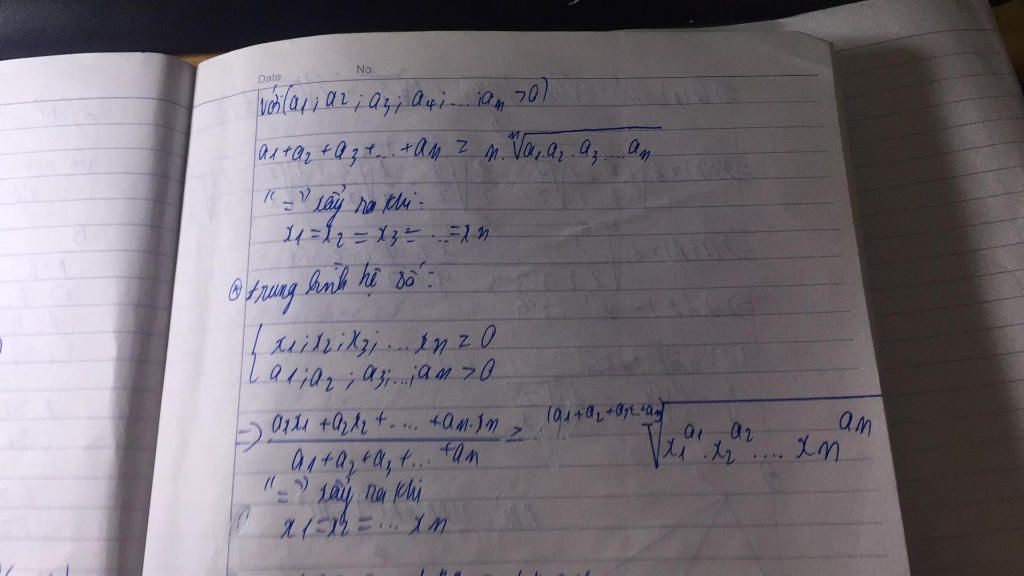 Date No.
với (a1; a2; a3; a4; ...; an > 0)
a1 + a2 + a3 + ... + an ≥ n. ⁿ√(a1.a2.a3...an)
"=" xảy ra khi:
x1 = x2 = x3 = ... = xn
⊛ trung bình hệ số:
{ x1; x2; x3; ... xn ≥ 0
a1; a2; a3; ...; an > 0
=> (a1x1 + a2x2 + .... + an.xn) / (a1 + a2 + a3 + ... + an) ≥ (a1+a2+a3+...+an)√(x1^a1 . x2^a2 .... xn^an)
"=" xảy ra khi
x1 = x2 = ... xn